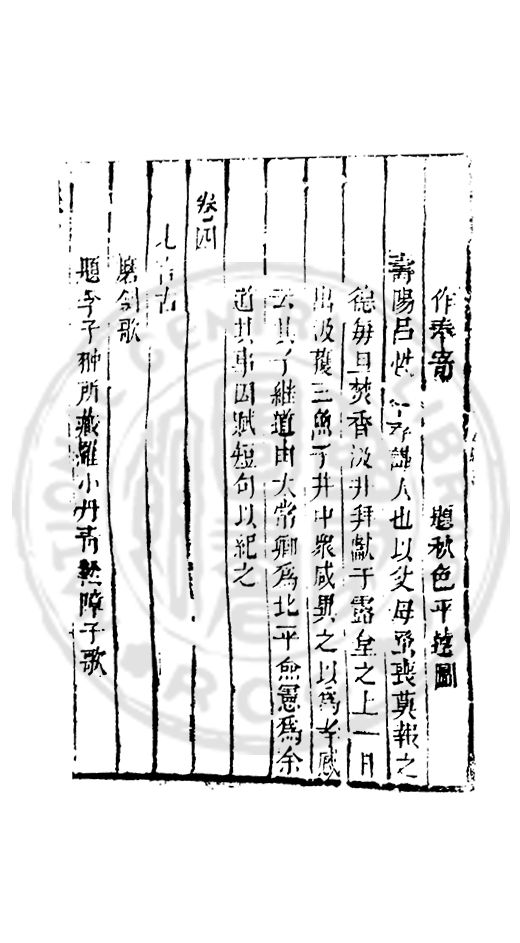 作奉寄　題秋色平遠圖
壽陽呂性人也以父母喪莫報之
德每旦焚香汲井拜獻于露皇之上一日
出汲獲三魚于井中衆咸異之以爲孝感
云其子繼道由太常卿爲北平僉憲爲余
道其事因賦短句以紀之
卷四
七言古
磨劍歌
題李子翀所藏羅小川青縣障子歌